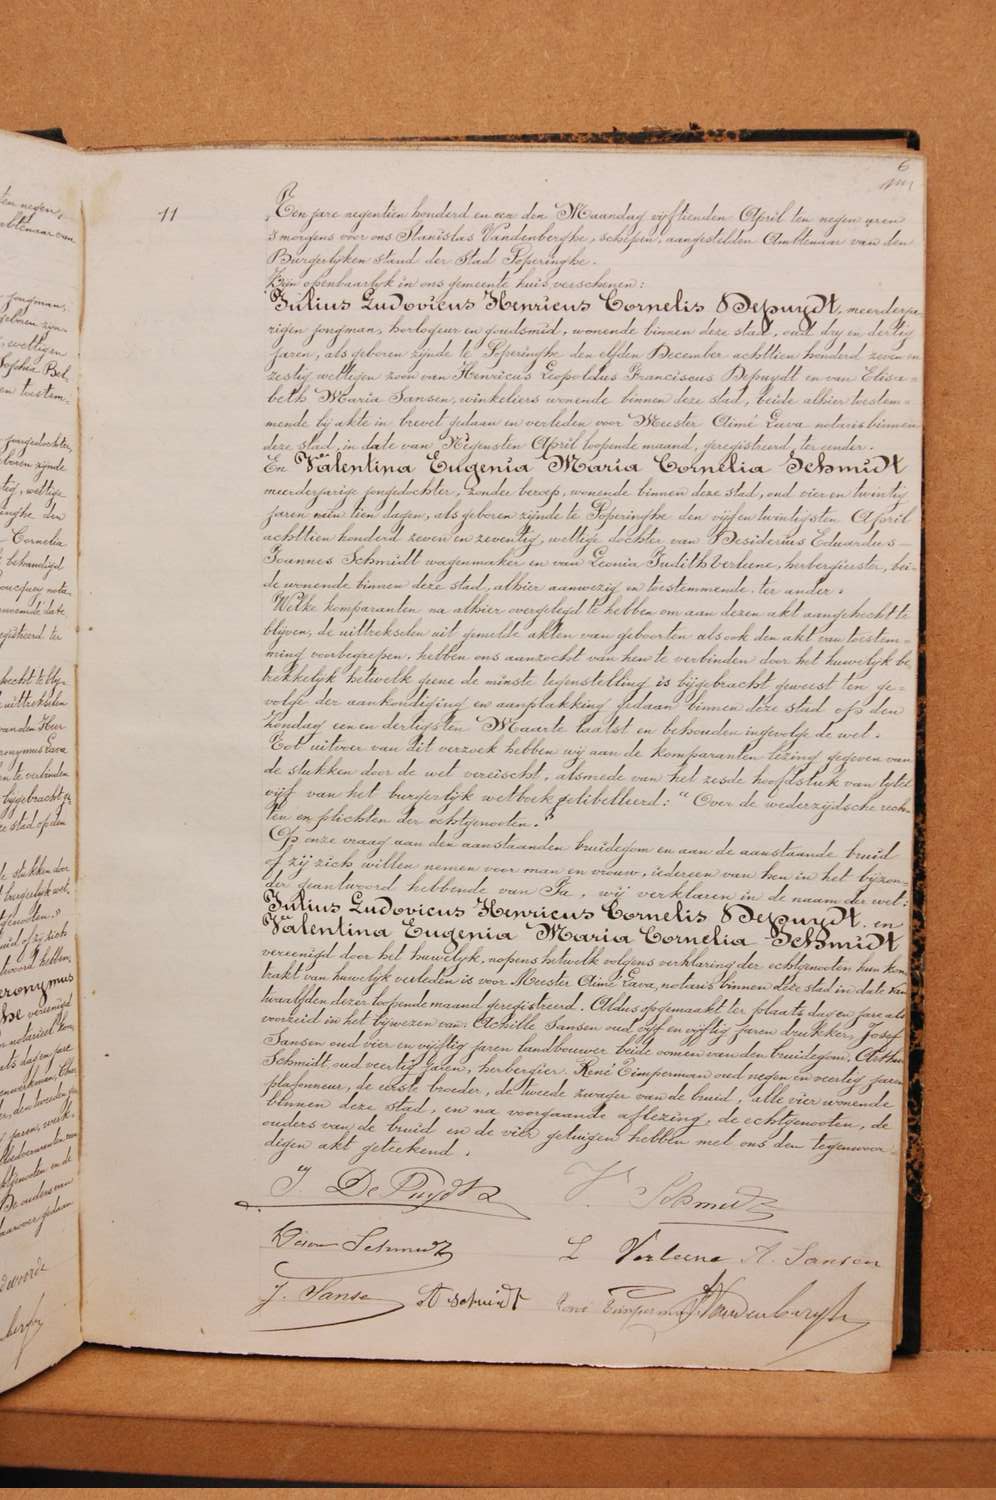 6
11
Een jare negentien honderd en een den Maandag vijftienden April ten negen uren
's morgens voor ons Stanislas Vandenberghe, schepen, aangestelden Ambtenaar van den
Burgerlijken stand der Stad Poperinghe.
Zijn openbaarlijk in ons gemeente huis verschenen:
Julius Ludovicus Henricus Cornelis Depuydt, meerderja-
rigen jongman, horlogeur en goudsmid, wonende binnen deze stad, oud dry en dertig
jaren, als geboren zijnde te Poperinghe den elfden December achttien honderd zeven en
zestig wettigen zoon van Henricus Leopoldus Franciscus Depuydt en van Elisa-
beth Maria Sansen, winkeliers wonende binnen deze stad, beide alhier toestem-
mende bij akte in brevet gedaan en verleden voor Meester Aimé Lava notaris binnen
deze stad, in date van Negensten April loopende maand, geregistreerd, ter eender.
En Valentina Eugenia Maria Cornelia Schmidt
meerderjarige jongedochter, zonder beroep, wonende binnen deze stad, oud vier en twintig
jaren min tien dagen, als geboren zijnde te Poperinghe den vijfentwintigsten April
achttien honderd zeven en zeventig, wettige dochter van Desiderius Eduardus
Joannes Schmidt wagenmaker en van Leonia Judith Verleene, herbergierster, bei-
de wonende binnen deze stad, alhier aanwezig en toestemmende, ter ander.
Welke komparanten na alhier overgelegd te hebben om aan dezen akt aangehecht te
blijven, de uittrekselen uit gemelde akten van geboorten alsook den akt van toestem-
ming voorbegrepen, hebben ons aanzocht van hen te verbinden door het huwelijk be-
trekkelijk hetwelk geene de minste tegenstelling is bijgebracht geweest ten ge-
volge der aankondiging en aanplakking gedaan binnen deze stad op den
Zondag een en dertigsten Maarte laatst en behouden ingevolge de wet.
Tot uitvoer van dit verzoek hebben wij aan de komparanten lezing gegeven van
de stukken door de wet vereischt, alsmede van het zesde hoofdstuk van tytel
vijf van het burgerlijk wetboek gelibelleerd: "Over de wederzijdsche rech-
ten en plichten der echtgenooten."
Op onze vraag aan den aanstaanden bruidegom en aan de aanstaande bruid
of zij zich willen nemen voor man en vrouw, iedereen van hen in het bijzon-
der geantwoord hebbende van Ja, wij verklaren in de naam der wet:
Julius Ludovicus Henricus Cornelis Depuydt, en
Valentina Eugenia Maria Cornelia Schmidt
vereenigd door het huwelijk, nopens hetwelk volgens verklaring der echtgenooten hun kon-
trakt van huwelijk verleden is voor Meester Aimé Lava, notaris binnen deze stad in date van
twaalfden dezer loopende maand geregistreerd. Aldus opgemaakt ter plaats dag en jare als
voorzeid in het bijwezen van: Achille Sansen oud vijf en vijftig jaren drukker, Josef
Sansen oud vier en vijftig jaren landbouwer beide oomen van den bruidegom, Arthur
Schmidt, oud veertig jaren, herbergier. René Timperman oud negen en veertig jaren
plafonneur, de eerste broeder, de tweede zwager van de bruid, alle vier wonende
binnen deze stad, en na voorgaande aflezing, de echtgenooten, de
ouders van de bruid en de vier getuigen hebben met ons den tegenwoor-
digen akt geteekend.
J. De Puydt V. Schmidt
Schmidt L Verleene A. Sansen
J. Sanse A Schmidt René Timperman Vandenberghe